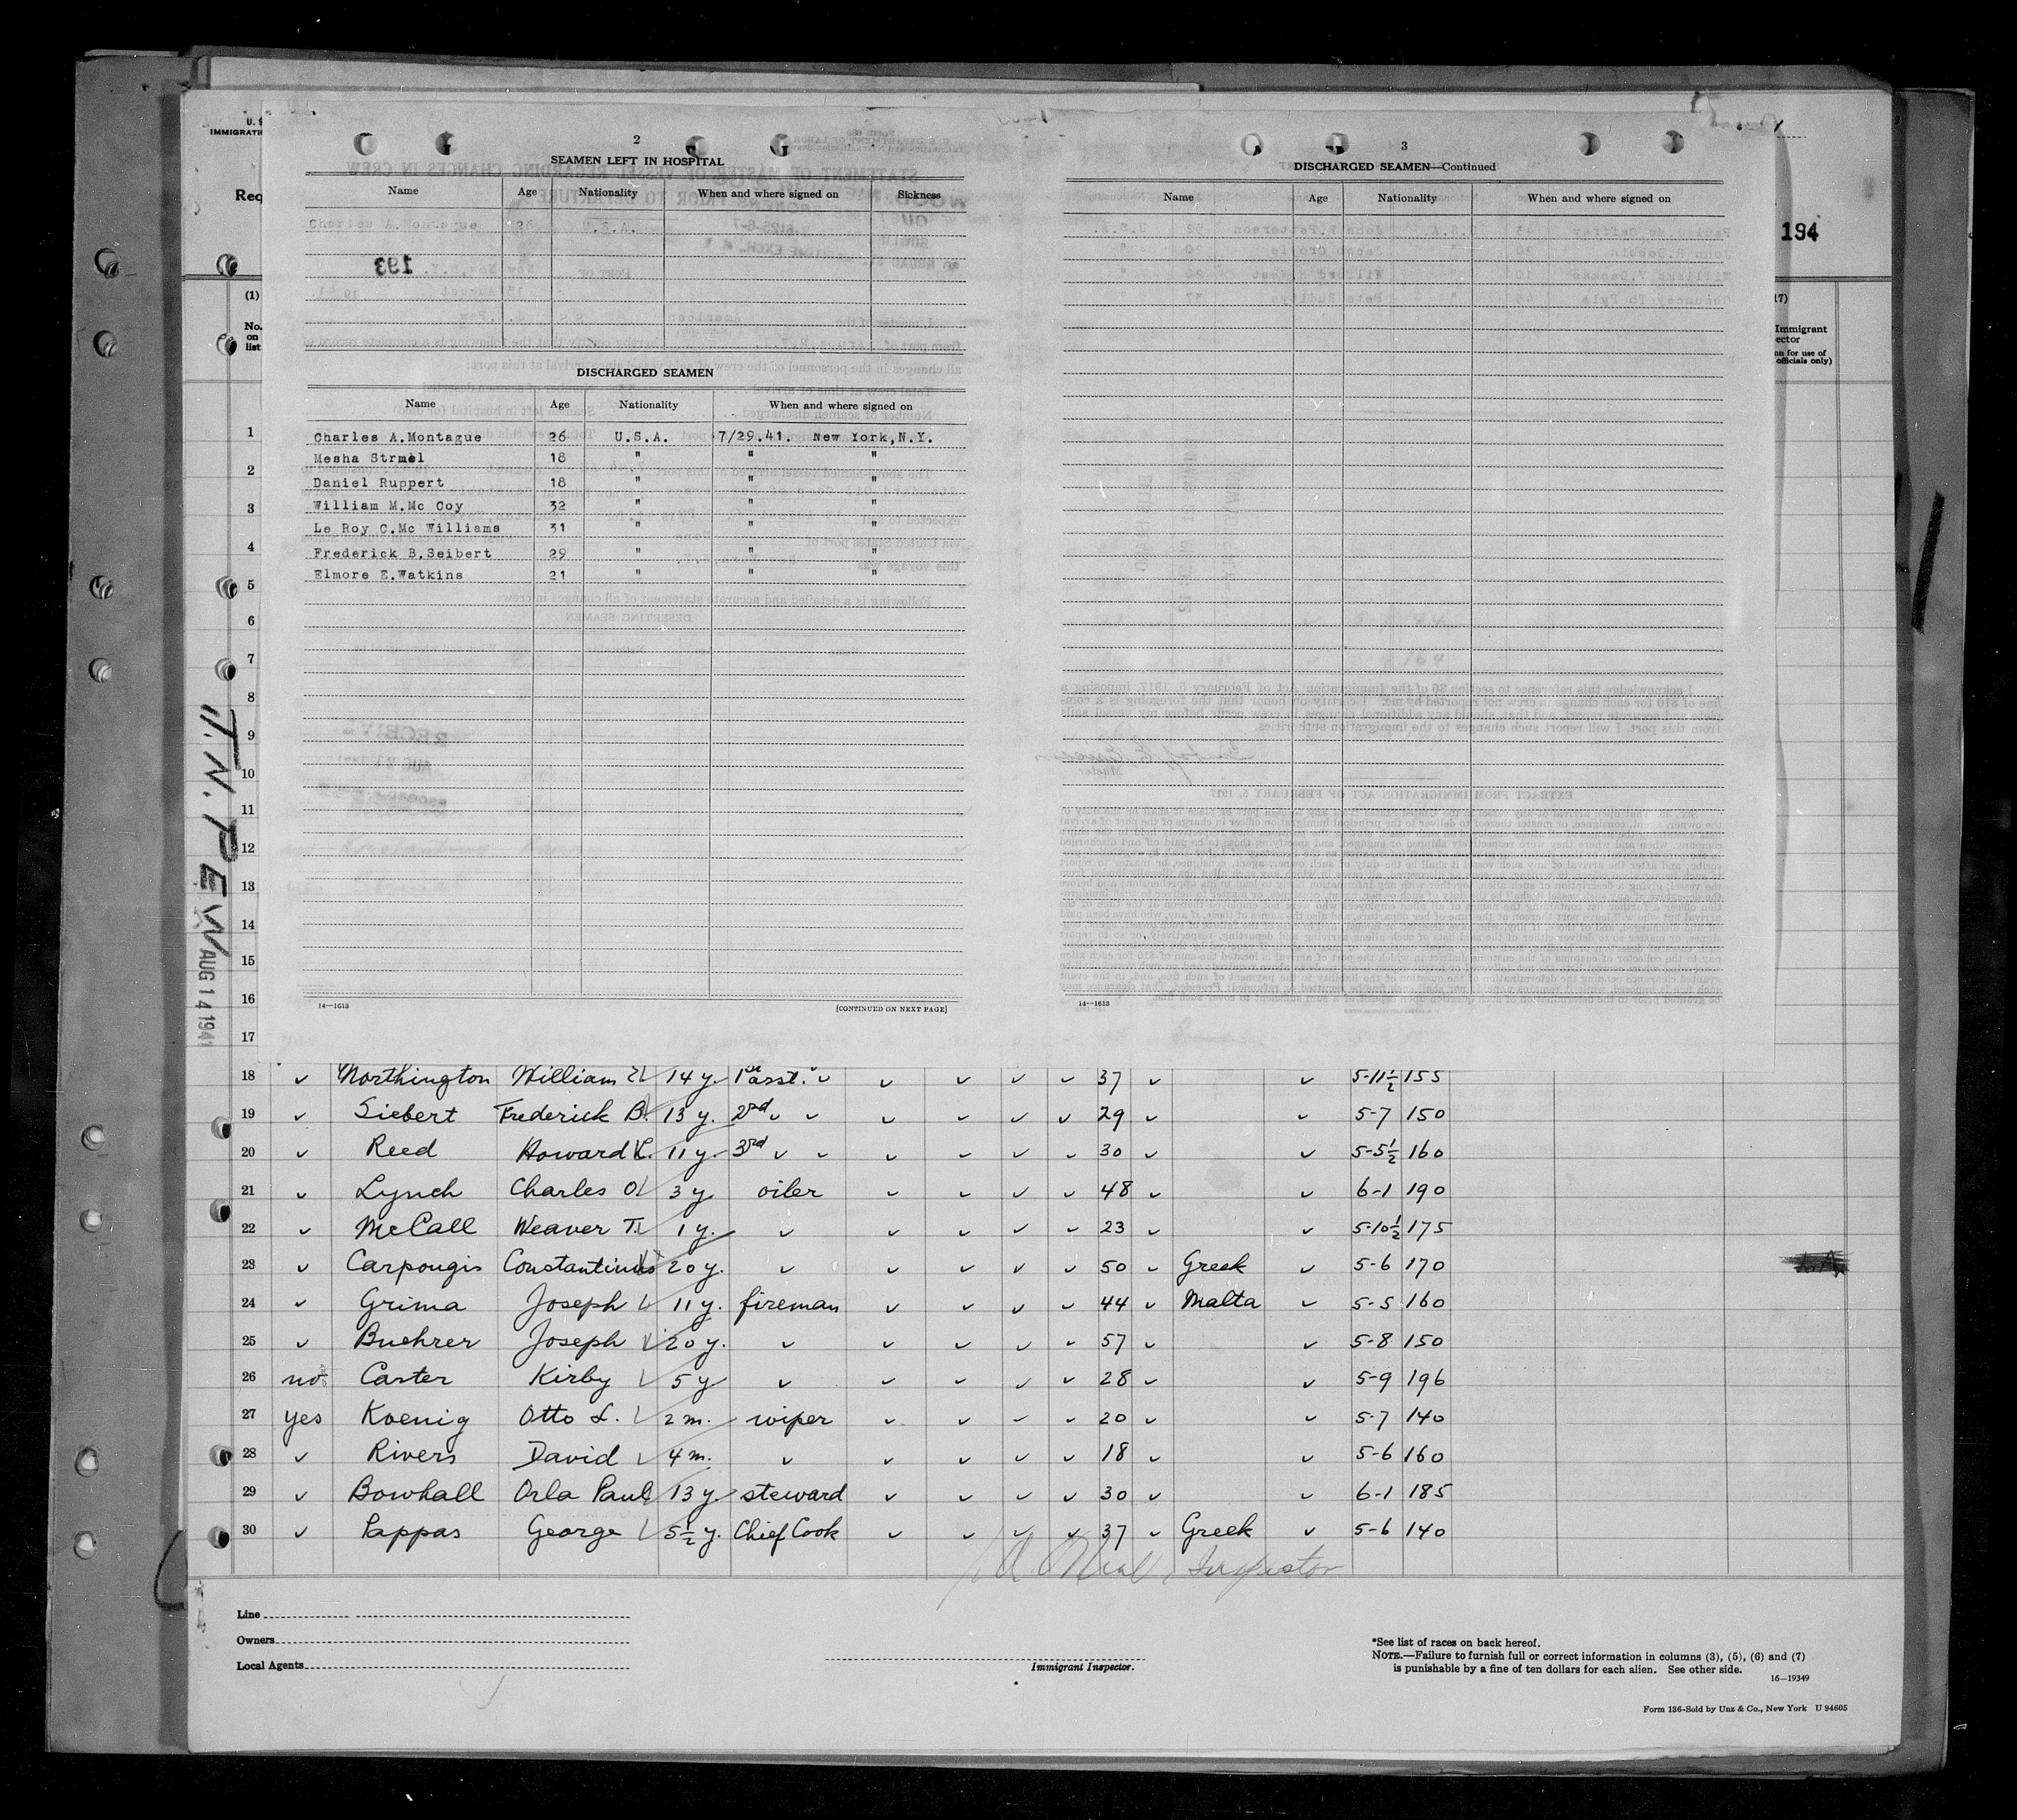 U. S
IMMIGRATIO
Req
194
(1)
No.
on
list
17)
Immigrant
ector
mn for use of
officials only)
2
SEAMEN LEFT IN HOSPITAL
Name Age Nationality When and where signed on Sickness
193
DISCHARGED SEAMEN
Name Age Nationality When and where signed on
Charles A.Montague 26 U.S.A. 7/29.41. New York,N.Y.
Mesha Strmel 18 " " "
Daniel Ruppert 18 " " "
William M.Mc Coy 32 " " "
Le Roy C.Mc Williams 31 " " "
Frederick B.Seibert 29 " " "
Elmore E.Watkins 21 " " "
14—1613 [CONTINUED ON NEXT PAGE]
3
DISCHARGED SEAMEN—Continued
Name Age Nationality When and where signed on
14—1613
J. N. PEW
AUG 14 1941
1
2
3
4
5
6
7
8
9
10
11
12
13
14
15
16
17
18 ✓ Northington William E 14 y. 1st asst. ✓ ✓ ✓ ✓ ✓ 37 ✓ ✓ 5-11½ 155
19 ✓ Siebert Frederick B. 13 y. 2nd ✓ ✓ ✓ ✓ ✓ ✓ 29 ✓ ✓ 5-7 150
20 ✓ Reed Howard L. 11 y. 3rd ✓ ✓ ✓ ✓ ✓ ✓ 30 ✓ ✓ 5-5½ 160
21 ✓ Lynch Charles O 3 y. oiler ✓ ✓ ✓ ✓ 48 ✓ ✓ 6-1 190
22 ✓ McCall Weaver T. 1 y. ✓ ✓ ✓ ✓ ✓ 23 ✓ ✓ 5-10½ 175
23 ✓ Carpougis Constantinos 20 y. ✓ ✓ ✓ ✓ ✓ 50 ✓ Greek ✓ 5-6 170
24 ✓ Grima Joseph 11 y. fireman ✓ ✓ ✓ ✓ 44 ✓ Malta ✓ 5-5 160
25 ✓ Buehrer Joseph 20 y. ✓ ✓ ✓ ✓ ✓ 57 ✓ ✓ 5-8 150
26 no Caster Kirby 5 y ✓ ✓ ✓ ✓ ✓ 28 ✓ ✓ 5-9 196
27 yes Koenig Otto L. 2 m. wiper ✓ ✓ ✓ ✓ 20 ✓ ✓ 5-7 140
28 ✓ Rivers David 4 m. ✓ ✓ ✓ ✓ ✓ 18 ✓ ✓ 5-6 160
29 ✓ Bowhall Orla Paul 13 y. steward ✓ ✓ ✓ ✓ 30 ✓ ✓ 6-1 185
30 ✓ Pappas George 5½ y. Chief Cook ✓ ✓ ✓ ✓ 37 ✓ Greek ✓ 5-6 140
Inspector
Line
Owners
Local Agents
Immigrant Inspector.
*See list of races on back hereof.
NOTE.—Failure to furnish full or correct information in columns (3), (5), (6) and (7)
is punishable by a fine of ten dollars for each alien. See other side.
16—19349
Form 136-Sold by Unz & Co., New York U 94605